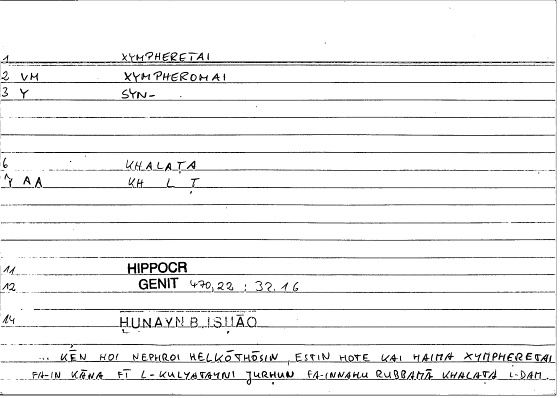 1 XYMPHERETAI
2 VM XYMPHEROMAI
3 Y SYN-
6 KHALAṬA
7 AA KH L Ṭ
11 HIPPOCR
12 GENIT 470,22 : 32.16
14 ḤUNAYN B. ISḤĀQ
... KĒN HOI NEPHROI HELKŌTHŌSIN, ESTIN HOTE KAI HAIMA XYMPHERETAI
FA-IN KĀNA FĪ L-KULYATAYNI JURḤUN FA-INNAHU RUBBAMĀ KHALAṬA L-DAM